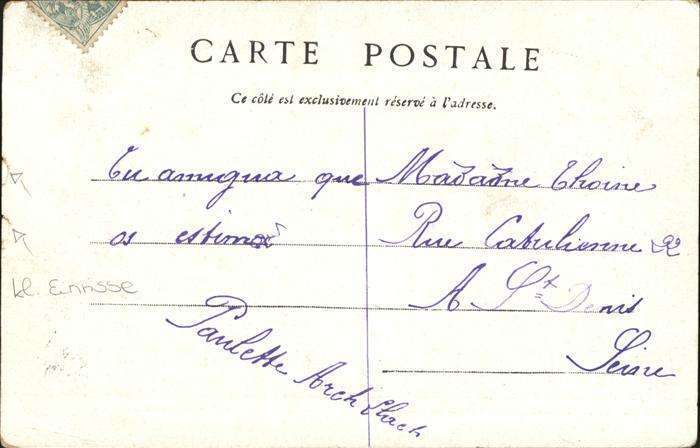 CARTE POSTALE
Ce côté est exclusivement réservé à l'adresse.
Tu amugua que
os estima
Paulette
Madame Thoine
Rue Catulienne 22
A St Denis
Seine